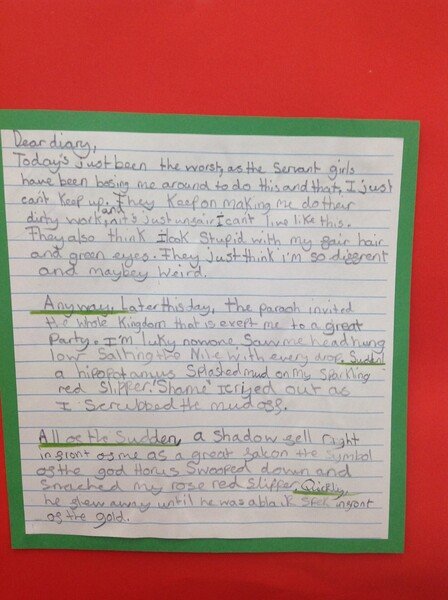 Dear diary,
Today's just been the worst, as the servant girls
have been bosing me around to do this and that, I just
can't keep up. They keep on making me do ther
dirty work, and it's just unfair I cant live like this.
They also think I look stupid with my fair hair
and green eyes. They just think i'm so different
and maybey weird.
Anyway, Later this day, the paraoh invited
the whole kingdom that is exept me to a great
Party. I'm luky nowone saw me head hung
low Salting the Nile with every drop. Sudden
a hipopotamus Splashed mud on my sparkling
red slipper. 'Shame' I cryed out as
I scrubbed the mud off.
All of the Sudden, a shadow fell right
infront of me as a great falcon the symbol
of the god Horus swooped down and
snached my rose red slipper. Quickly,
he flew away until he was a black speck infront
of the gold.